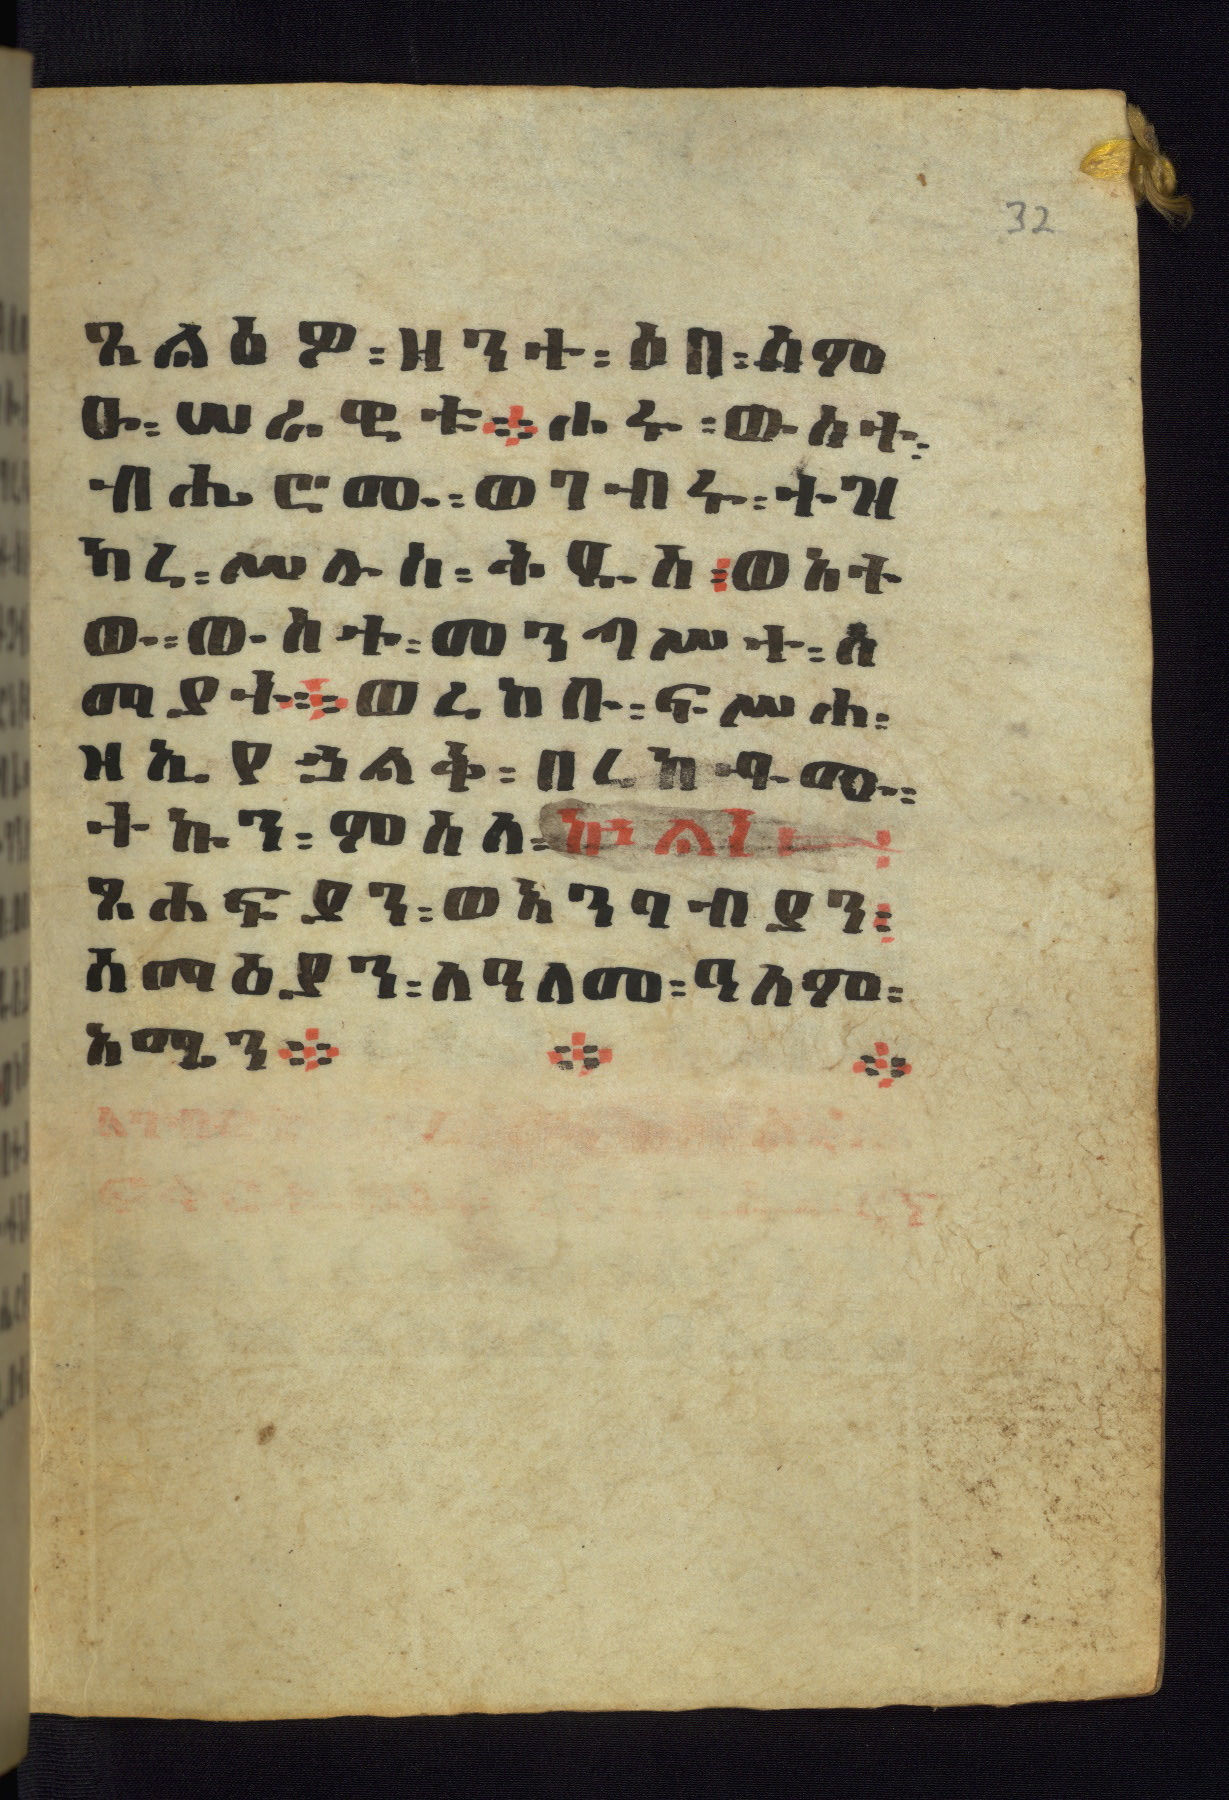 32
ጼልዕዎ፡ዝንተ፡ዕበ፡ለም
ዑ፡ሠራዊተ፨ሐሩ፡ውስተ፡
ብሔሮሙ፡ወገብሩ፡ተዝ
ካረ፡ሥሉስ፡ቅዱስ፡ወአተ
ው፡ውስተ፡መንግሥተ፡ሰ
ማያት፨ወረከቡ፡ፍሥሐ፡
ዘኢየኃልቅ፡በረከቶሙ፡
ተኩን፡ምስለ፡
ጸሐፍያን፡ወአንባብያን፡
ሰማዕያን፡ለዓለመ፡ዓለም፡
አሜን፨ ፨ ፨